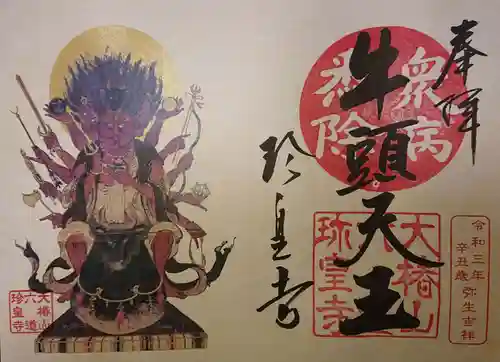 奉拝
衆病
悉除
牛頭天王
大椿山
六
珍皇寺
珍皇寺
令和三年
辛丑歳 弥生吉祥
大椿山
六道
珍皇寺